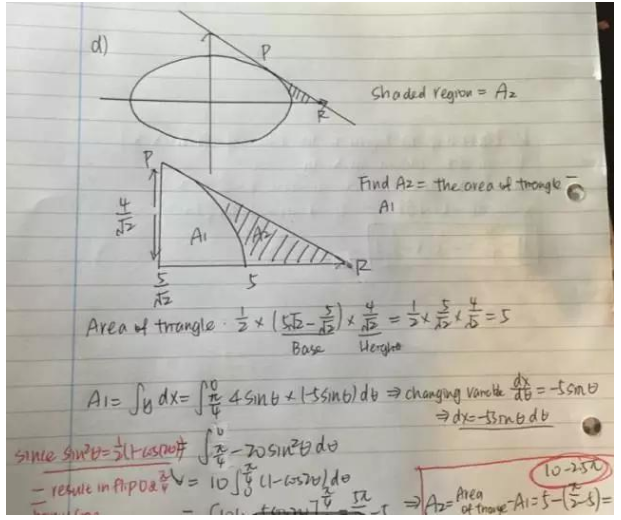 d)
P
R
Shaded region = A2
P
Find A2 = the area of triangle -
A1
4/√2
A1
A2
5/√2
5
R
Area of triangle · 1/2 × (5√2 - 5/√2) × 4/√2 = 1/2 × 5/√2 × 4/√2 = 5
Base Height
A1 = ∫y dx = ∫π/4^0 4 sinθ × (-5sinθ) dθ ⇒ changing varible dx/dθ = -5sinθ
⇒ dx = -5sinθ dθ
since sin²θ = 1/2(1-cos2θ) ∫π/4^0 -20sin²θ dθ
- result in flip 0 & π/4 = 10∫0^π/4 (1-cos2θ) dθ
10-2.5π
⇒ A2 = Area of triangle - A1 = 5 - (